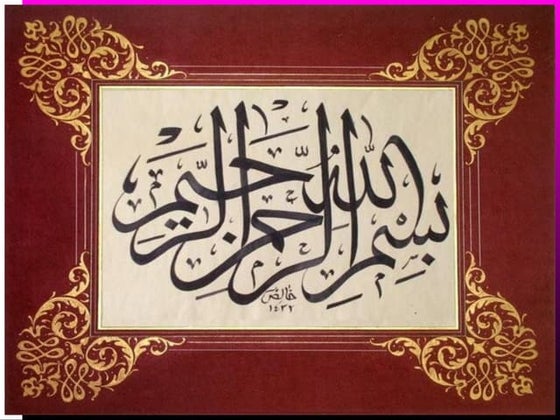 بِسْمِ اللهِ الرَّحْمٰنِ الرَّحِيمِ
خالص
١٤٣٢